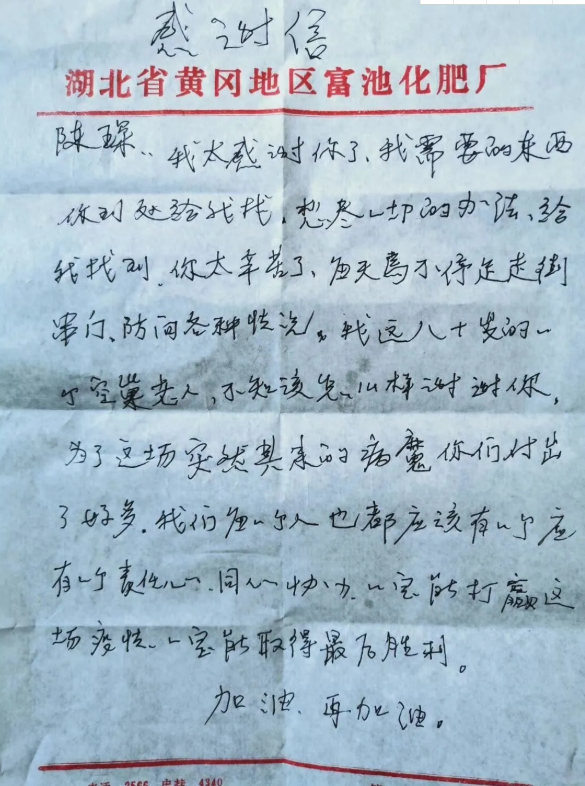 感谢信
湖北省黄冈地区富池化肥厂
陈琛:我太感谢你了、我需要的东西
你到处给我找,想尽一切的办法、给
我找到,你太辛苦了、每天马不停足走街
串门、防问各种情况,我这八十岁的一
个空巢老人,不知该怎么样谢谢你,
为了这场突然其来的病魔你们付出
了好多,我们每一个人也都应该有一个应
有一个责任心,同心协力,一定能打赢这
场疫情、一定能取得最后胜利。
加油、再加油。
电话 2566 电挂 4340